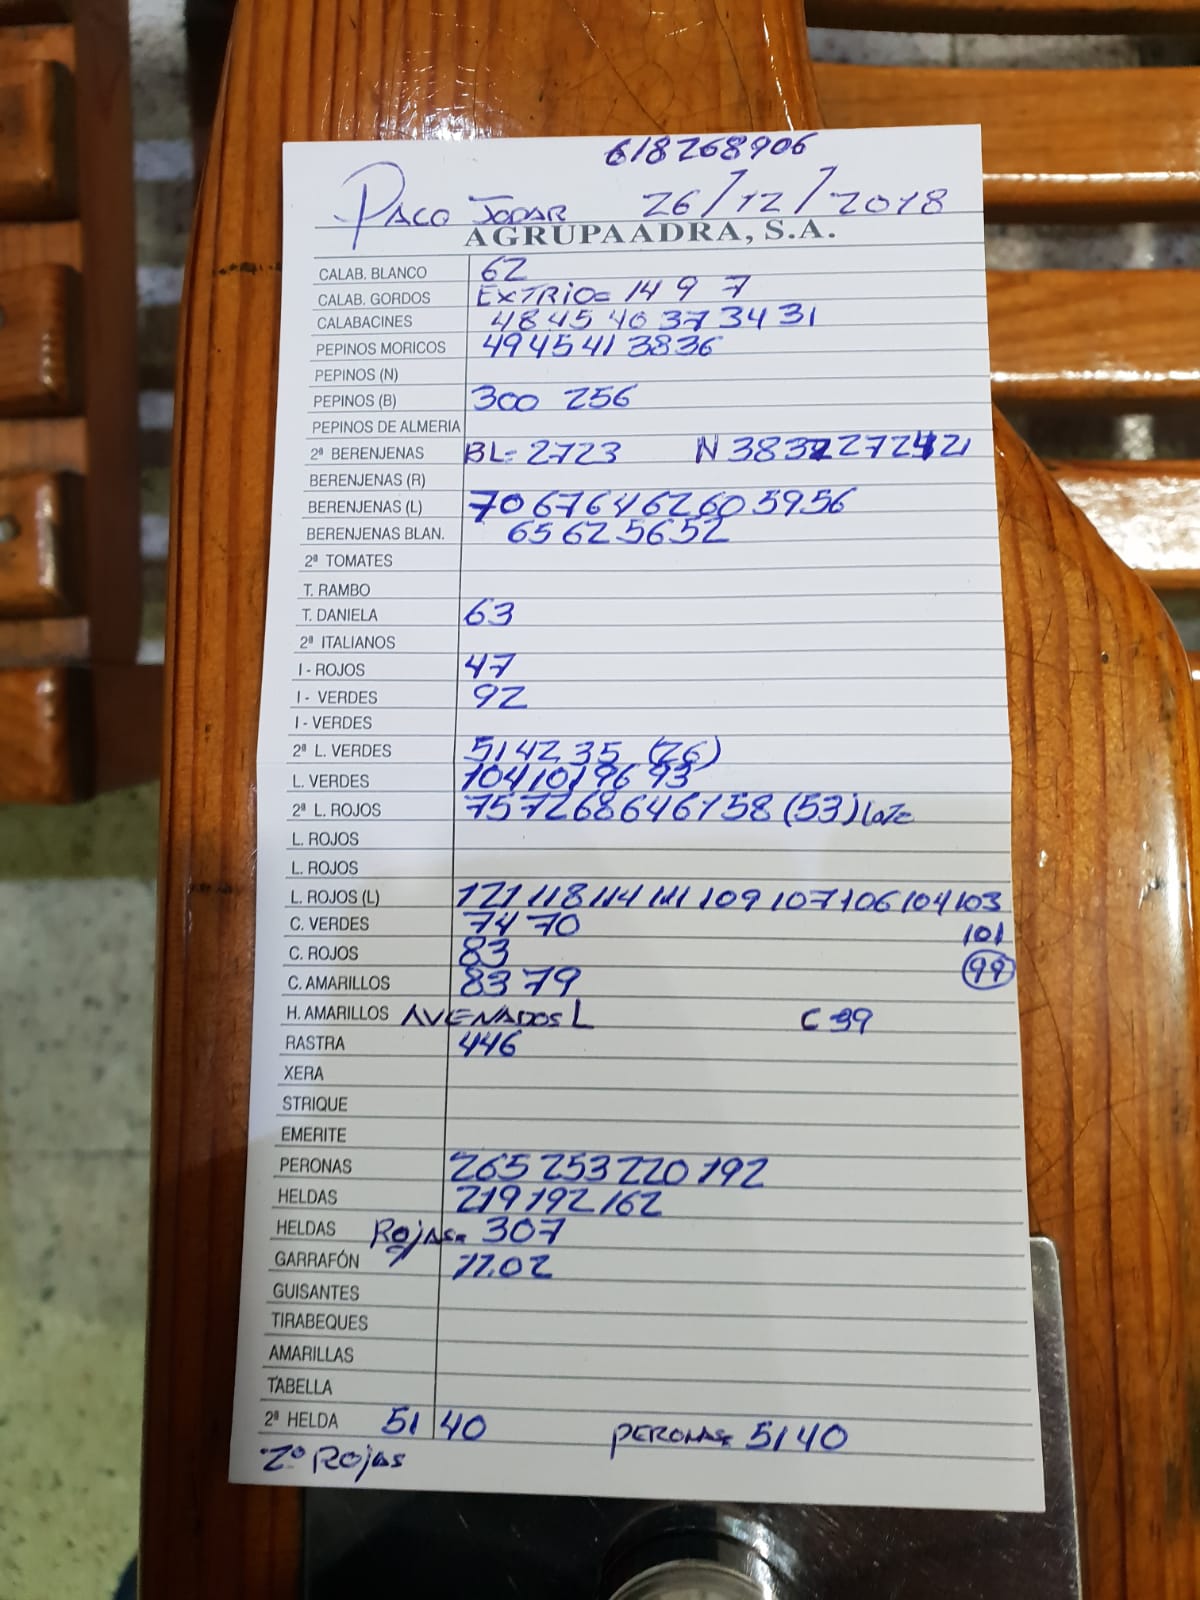 618268906
PACO JODAR 26/12/2018
AGRUPAADRA, S.A.
CALAB. BLANCO 62
CALAB. GORDOS EXTRIO= 14 9 7
CALABACINES 48 45 40 37 34 31
PEPINOS MORICOS 49 45 41 38 36
PEPINOS (N)
PEPINOS (B) 300 256
PEPINOS DE ALMERIA
2ª BERENJENAS BL= 27 23 N 38 32 27 24 21
BERENJENAS (R)
BERENJENAS (L) 70 67 64 62 60 59 56
BERENJENAS BLAN. 65 62 56 52
2ª TOMATES
T. RAMBO
T. DANIELA 63
2ª ITALIANOS
I - ROJOS 47
I - VERDES 92
I - VERDES
2ª L. VERDES 51 42 35 (26)
L. VERDES 104 101 96 93
2ª L. ROJOS 75 72 68 64 61 58 (53) Lote
L. ROJOS
L. ROJOS
L. ROJOS (L) 121 118 114 111 109 107 106 104 103
C. VERDES 74 70 101
C. ROJOS 83 99
C. AMARILLOS 83 79
H. AMARILLOS AVENADOS L C 39
RASTRA 446
XERA
STRIQUE
EMERITE
PERONAS 265 253 220 192
HELDAS 219 192 162
HELDAS ROJAS= 307
GARRAFÓN 11.02
GUISANTES
TIRABEQUES
AMARILLAS
TABELLA
2ª HELDA 51 40 PERONAS= 51 40
2º ROJAS